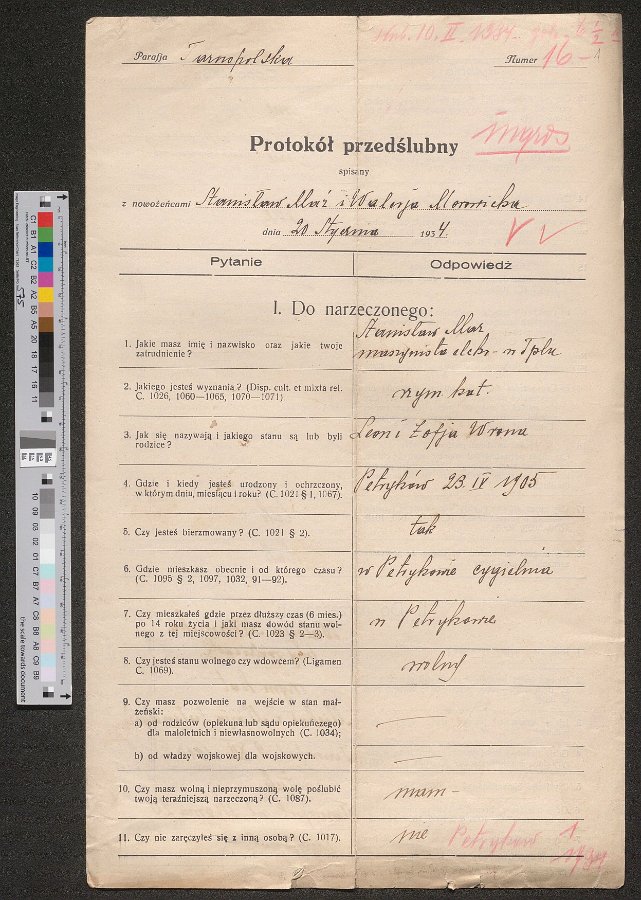 Parafja Tarnopolska
Numer 16
ingros
Protokół przedślubny
spisany
z nowożeńcami Stanisław Mar i Walerja
dnia 20 Stycznia 1934.
Pytanie Odpowiedź
I. Do narzeczonego:
1. Jakie masz imię i nazwisko oraz jakie twoje
zatrudnienie?
Stanisław Mar
maszynista elektr.
2. Jakiego jesteś wyznania? (Disp. cult. et mixta rel.
C. 1026, 1060—1065, 1070—1071)
rzym kat.
3. Jak się nazywają i jakiego stanu są lub byli
rodzice?
Leon i Zofja Wrona
4. Gdzie i kiedy jesteś urodzony i ochrzczony,
w którym dniu, miesiącu i roku? (C. 1021 § 1, 1067).
Petryków 23. IV 1905
5. Czy jesteś bierzmowany? (C. 1021 § 2).
tak
6. Gdzie mieszkasz obecnie i od którego czasu?
(C. 1095 § 2, 1097, 1032, 91—92).
w Petrykowie cygielnia
7. Czy mieszkałeś gdzie przez dłuższy czas (6 mies.)
po 14 roku życia i jaki masz dowód stanu wol-
nego z tej miejscowości? (C. 1023 § 2—3).
w Petrykowie
8. Czy jesteś stanu wolnego czy wdowcem? (Ligamen
C. 1069).
wolny
9. Czy masz pozwolenie na wejście w stan mał-
żeński:
a) od rodziców (opiekuna lub sądu opiekuńczego)
dla małoletnich i niewłasnowolnych (C. 1034);
b) od władzy wojskowej dla wojskowych.
10. Czy masz wolną i nieprzymuszoną wolę poślubić
twoją teraźniejszą narzeczoną? (C. 1087).
mam —
11. Czy nie zaręczyłeś się z inną osobą? (C. 1017).
nie
Petryków 1
1934
the scale towards document